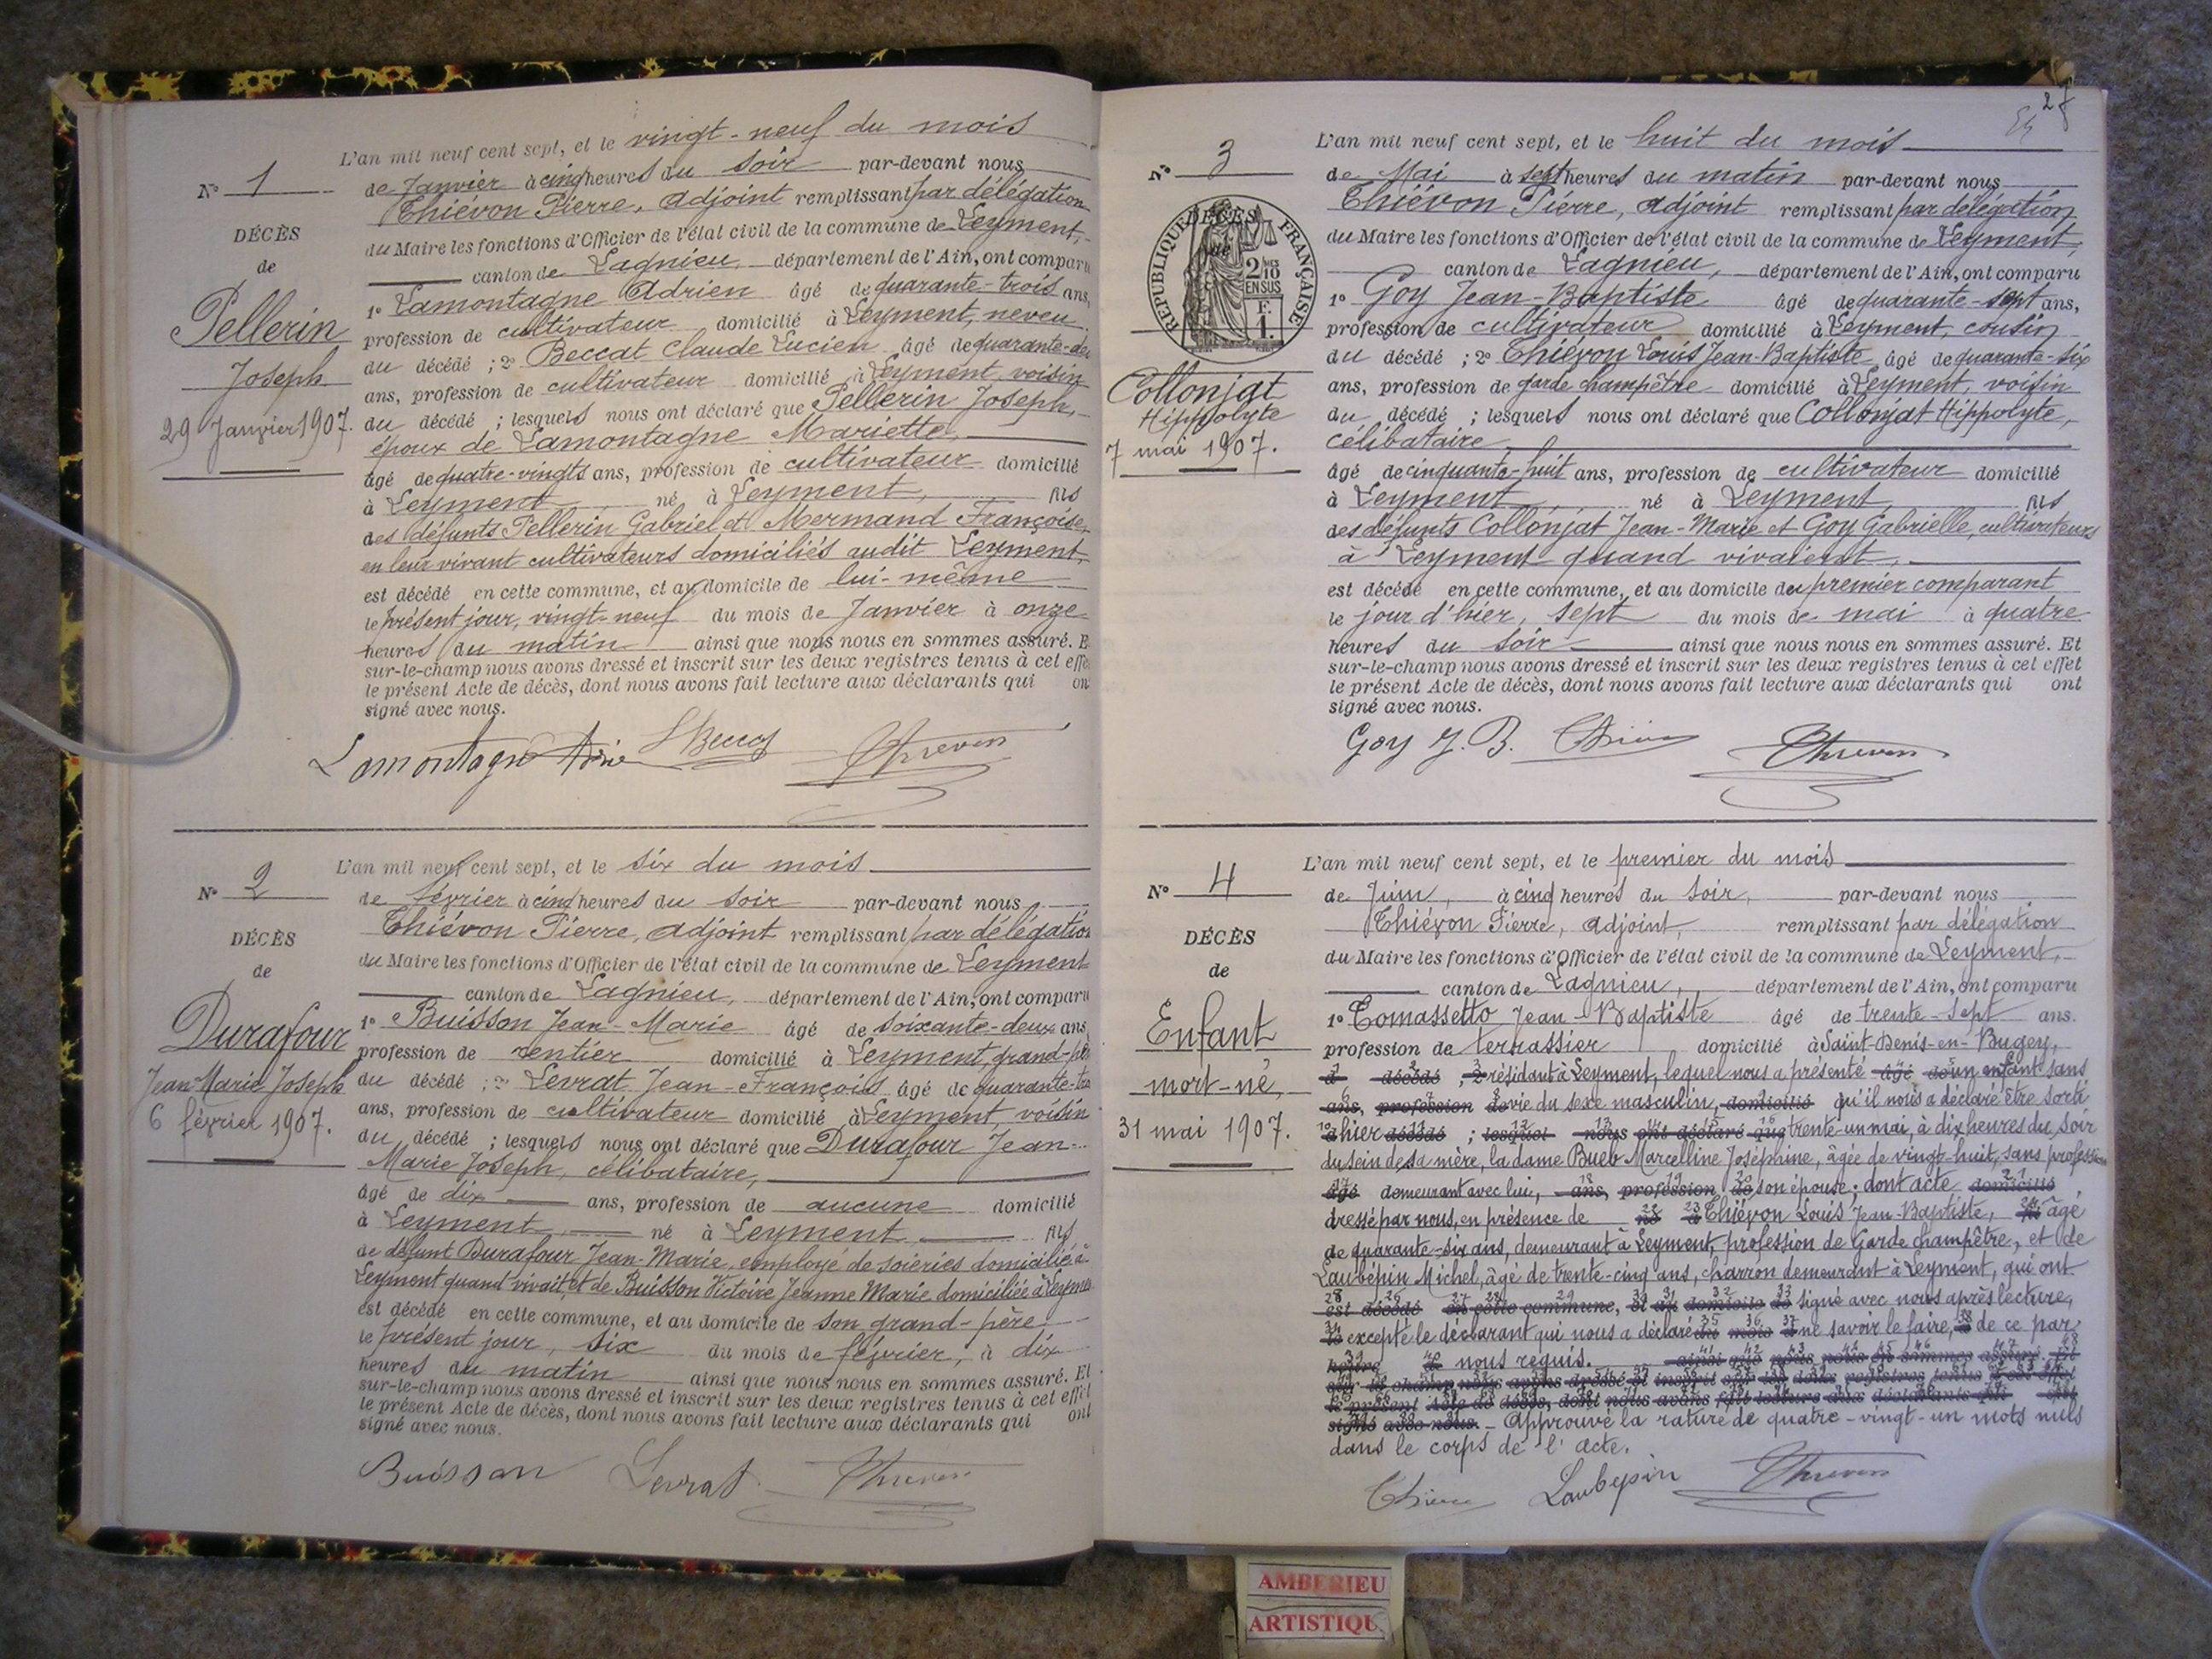 L'an mil neuf cent sept, et le vingt-neuf du mois
N° 1
de Janvier à cinq heures du soir par-devant nous
Thiévon Pierre, adjoint remplissant par délégation
DÉCÈS
du Maire les fonctions d'Officier de l'état civil de la commune de Leyment,
de
canton de Lagnieu, département de l'Ain, ont comparu
1° Lamontagne Adrien âgé de quarante-trois ans,
Pellerin
profession de cultivateur domicilié à Leyment, neveu
du décédé ; 2° Beccat Claude Lucien âgé de quarante-deu
Joseph
ans, profession de cultivateur domicilié à Leyment, voisin
29 Janvier 1907.
du décédé ; lesquels nous ont déclaré que Pellerin Joseph,
époux de Lamontagne Mariette,
âgé de quatre-vingts ans, profession de cultivateur domicilié
à Leyment, né à Leyment, fils
des défunts Pellerin Gabriel et Mermand Françoise,
en leur vivant cultivateurs domiciliés audit Leyment,
est décédé en cette commune, et au domicile de lui-même
le présent jour, vingt-neuf du mois de Janvier à onze
heures du matin ainsi que nous nous en sommes assuré. E
sur-le-champ nous avons dressé et inscrit sur les deux registres tenus à cet effe
le présent Acte de décès, dont nous avons fait lecture aux déclarants qui on
signé avec nous.
Lamontagne
L'an mil neuf cent sept, et le six du mois
N° 2
de février à cinq heures du soir par-devant nous
Thiévon Pierre, adjoint remplissant par délégation
DÉCÈS
du Maire les fonctions d'Officier de l'état civil de la commune de Leyment
de
canton de Lagnieu, département de l'Ain, ont comparu
1° Buisson Jean-Marie âgé de soixante-deux ans,
Durafour
profession de rentier domicilié à Leyment, grand-pè
Jean-Marie Joseph
du décédé ; 2° Levrat Jean-François âgé de quarante-tro
6 février 1907.
ans, profession de cultivateur domicilié à Leyment, voisin
du décédé ; lesquels nous ont déclaré que Durafour Jean-
Marie Joseph, célibataire,
âgé de dix ans, profession de aucune domicilié
à Leyment, né à Leyment, fils
de défunt Durafour Jean-Marie, employé de soieries domicilié à
Leyment quand vivait, et de Buisson Victoire Jeanne Marie domiciliée à Leyme
est décédé en cette commune, et au domicile de son grand-père
le présent jour, six du mois de février, à dix
heures du matin ainsi que nous nous en sommes assuré. Et
sur-le-champ nous avons dressé et inscrit sur les deux registres tenus à cet effet
le présent Acte de décès, dont nous avons fait lecture aux déclarants qui ont
signé avec nous.
Buisson Levrat Thievon
27
L'an mil neuf cent sept, et le huit du mois
N° 3
de Mai à sept heures du matin par-devant nous
Thiévon Pierre, adjoint remplissant par délégation
DÉCÈS
de
RÉPUBLIQUE FRANÇAISE
2/10 EN SUS
F. 1.
du Maire les fonctions d'Officier de l'état civil de la commune de Leyment,
canton de Lagnieu, département de l'Ain, ont comparu
1° Goy Jean-Baptiste âgé de quarante-sept ans,
profession de cultivateur domicilié à Leyment, cousin
du décédé ; 2° Thiévon Louis Jean-Baptiste âgé de quarante-six
Collonjat
ans, profession de garde champêtre domicilié à Leyment, voisin
Hippolyte
du décédé ; lesquels nous ont déclaré que Collonjat Hippolyte,
7 mai 1907.
célibataire
âgé de cinquante-huit ans, profession de cultivateur domicilié
à Leyment, né à Leyment, fils
des défunts Collonjat Jean-Marie et Goy Gabrielle, cultivateurs
à Leyment quand vivaient,
est décédé en cette commune, et au domicile du premier comparant
le jour d'hier, sept du mois de mai à quatre
heures du soir ainsi que nous nous en sommes assuré. Et
sur-le-champ nous avons dressé et inscrit sur les deux registres tenus à cet effet
le présent Acte de décès, dont nous avons fait lecture aux déclarants qui ont
signé avec nous.
Goy J. B. Thievon
L'an mil neuf cent sept, et le premier du mois
N° 4
de Juin, à cinq heures du soir, par-devant nous
Thiévon Pierre, adjoint, remplissant par délégation
DÉCÈS
du Maire les fonctions d'Officier de l'état civil de la commune de Leyment,
de
canton de Lagnieu, département de l'Ain, ont comparu
1° Tomassetto Jean-Baptiste âgé de trente-sept ans.
Enfant
profession de terrassier domicilié à Saint-Denis-en-Bugey,
mort-né,
résidant à Leyment, lequel nous a présenté un enfant sans
vie du sexe masculin, qu'il nous a déclaré être sorti
31 mai 1907.
hier trente-un mai, à dix heures du soir
du sein de sa mère, la dame Bueb Marcelline Joséphine, âgée de vingt-huit, sans profession
demeurant avec lui, son épouse ; dont acte
dressé par nous, en présence de Thiévon Louis Jean-Baptiste, âgé
de quarante-six ans, demeurant à Leyment, profession de Garde champêtre, et de
Laubépin Michel, âgé de trente-cinq ans, charron demeurant à Leyment, qui ont
signé avec nous après lecture,
excepté le déclarant qui nous a déclaré ne savoir le faire, de ce par
nous requis.
Approuvé la rature de quatre-vingt-un mots nuls
dans le corps de l'acte.
Laubépin Thievon
AMBERIEU
ARTISTIQU